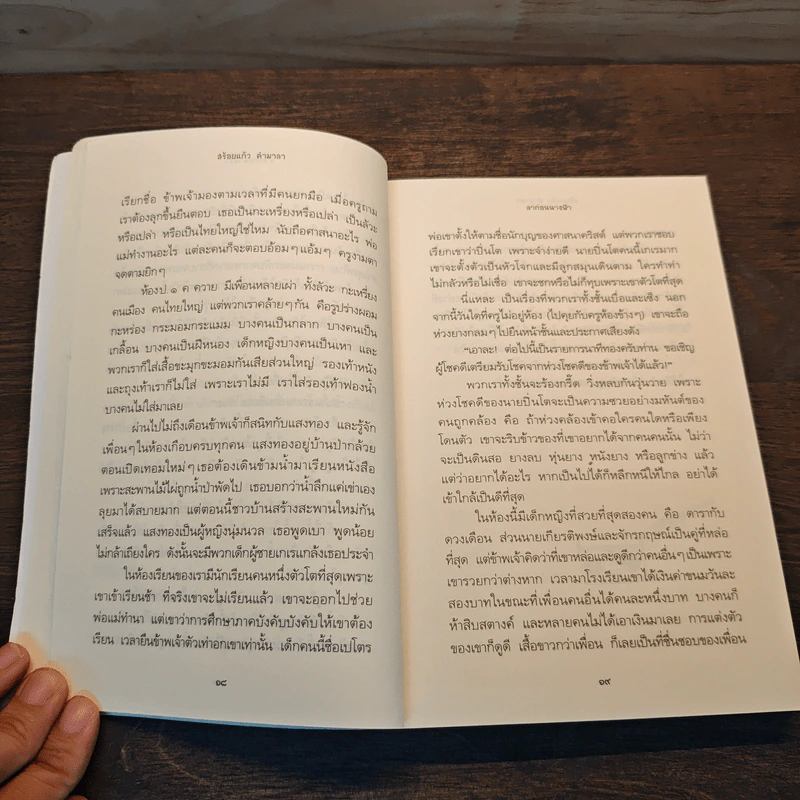 สร้อยแก้ว คำมาลา
เรียกชื่อ ข้าพเจ้ามองตามเวลาที่มีคนยกมือ เมื่อครูถาม
เราต้องลุกขึ้นยืนตอบ เธอเป็นกะเหรี่ยงหรือเปล่า เป็นลัวะ
หรือเปล่า หรือเป็นไทยใหญ่ใช่ไหม นับถือศาสนาอะไร พ่อ
แม่ทำงานอะไร แต่ละคนก็จะตอบอ้อมๆแอ้มๆ ครูงามตา
จดตามยิกๆ
ห้องป.๑ ค ควาย มีเพื่อนหลายเผ่า ทั้งลัวะ กะเหรี่ยง
คนเมือง คนไทยใหญ่ แต่พวกเราคล้ายๆกัน คือรูปร่างผอม
กะหร่อง กระมอมกระแมม บางคนเป็นกลาก บางคนเป็น
เกลื้อน บางคนเป็นฝีหนอง เด็กหญิงบางคนเป็นเหา และ
พวกเราก็ใส่เสื้อขะมุกขะมอมกันเสียส่วนใหญ่ รองเท้าหนัง
และถุงเท้าเราก็ไม่ใส่ เพราะเราไม่มี เราใส่รองเท้าฟองน้ำ
บางคนไม่ใส่มาเลย
ผ่านไปไม่ถึงเดือนข้าพเจ้าก็สนิทกับแสงทอง และรู้จัก
เพื่อนๆในห้องเกือบครบทุกคน แสงทองอยู่บ้านป่ากล้วย
ตอนเปิดเทอมใหม่ๆเธอต้องเดินข้ามน้ำมาเรียนหนังสือ
เพราะสะพานไม้ไผ่ถูกน้ำป่าพัดไป เธอบอกว่าน้ำลึกแค่เข่าเอง
ลุยมาได้สบายมาก แต่ตอนนี้ชาวบ้านสร้างสะพานใหม่กัน
เสร็จแล้ว แสงทองเป็นผู้หญิงนุ่มนวล เธอพูดเบา พูดน้อย
ไม่กล้าเถียงใคร ดังนั้นจะมีพวกเด็กผู้ชายเกเรแกล้งเธอประจำ
ในห้องเรียนของเรามีนักเรียนคนหนึ่งตัวโตที่สุดเพราะ
เขาเข้าเรียนช้า ที่จริงเขาจะไม่เรียนแล้ว เขาจะออกไปช่วย
พ่อแม่ทำนา แต่เขาว่าการศึกษาภาคบังคับบังคับให้เขาต้อง
เรียน เวลายืนข้าพเจ้าตัวเท่าอกเขาเท่านั้น เด็กคนนี้ชื่อเปโตร
๑๘
ลาก่อนนางฟ้า
พ่อเขาตั้งให้ตามชื่อนักบุญของศาสนาคริสต์ แต่พวกเราชอบ
เรียกเขาว่าปิ่นโต เพราะจำง่ายดี นายปิ่นโตคนนี้เกเรมาก
เขาจะตั้งตัวเป็นหัวโจกและมีลูกสมุนเดินตาม ใครทำท่า
ไม่กลัวหรือไม่เชื่อ เขาจะชกหรือไม่ก็ทุบเพราะเขาตัวโตที่สุด
นี่แหละ เป็นเรื่องที่พวกเราทั้งชั้นเบื่อและเซ็ง นอก
จากนี้วันใดที่ครูไม่อยู่ห้อง (ไปคุยกับครูห้องข้างๆ) เขาจะถือ
ห่วงยางกลมๆไปยืนหน้าชั้นและประกาศเสียงดัง
“เอาละ! ต่อไปนี้เป็นรายการนาทีทองครับท่าน ขอเชิญ
ผู้โชคดีเตรียมรับโชคจากห่วงโชคดีของข้าพเจ้าได้แล้ว!”
พวกเราทั้งชั้นจะร้องกรี๊ด วิ่งหลบกันวุ่นวาย เพราะ
ห่วงโชคดีของนายปิ่นโตจะเป็นความซวยอย่างมหันต์ของ
คนถูกคล้อง คือ ถ้าห่วงคล้องเข้าคอใครคนใดหรือเพียง
โดนตัว เขาจะริบข้าวของที่เขาอยากได้จากคนคนนั้น ไม่ว่า
จะเป็นดินสอ ยางลบ หุ่นยาง หนังยาง หรือลูกข่าง แล้ว
แต่ว่าอยากได้อะไร หากเป็นไปได้ก็หลีกหนีให้ไกล อย่าได้
เข้าใกล้เป็นดีที่สุด
ในห้องนี้มีเด็กหญิงที่สวยที่สุดสองคน คือ ดารากับ
ดวงเดือน ส่วนนายเกียรติพงษ์และจักรกฤษณ์เป็นคู่ที่หล่อ
ที่สุด แต่ข้าพเจ้าคิดว่าที่เขาหล่อและดูดีกว่าคนอื่นๆเป็นเพราะ
เขารวยกว่าต่างหาก เวลามาโรงเรียนเขาได้เงินค่าขนมวันละ
สองบาทในขณะที่เพื่อนคนอื่นได้คนละหนึ่งบาท บางคนก็
ห้าสิบสตางค์ และหลายคนไม่ได้เอาเงินมาเลย การแต่งตัว
ของเขาก็ดูดี เสื้อขาวกว่าเพื่อน ก็เลยเป็นที่ชื่นชอบของเพื่อน
๑๙